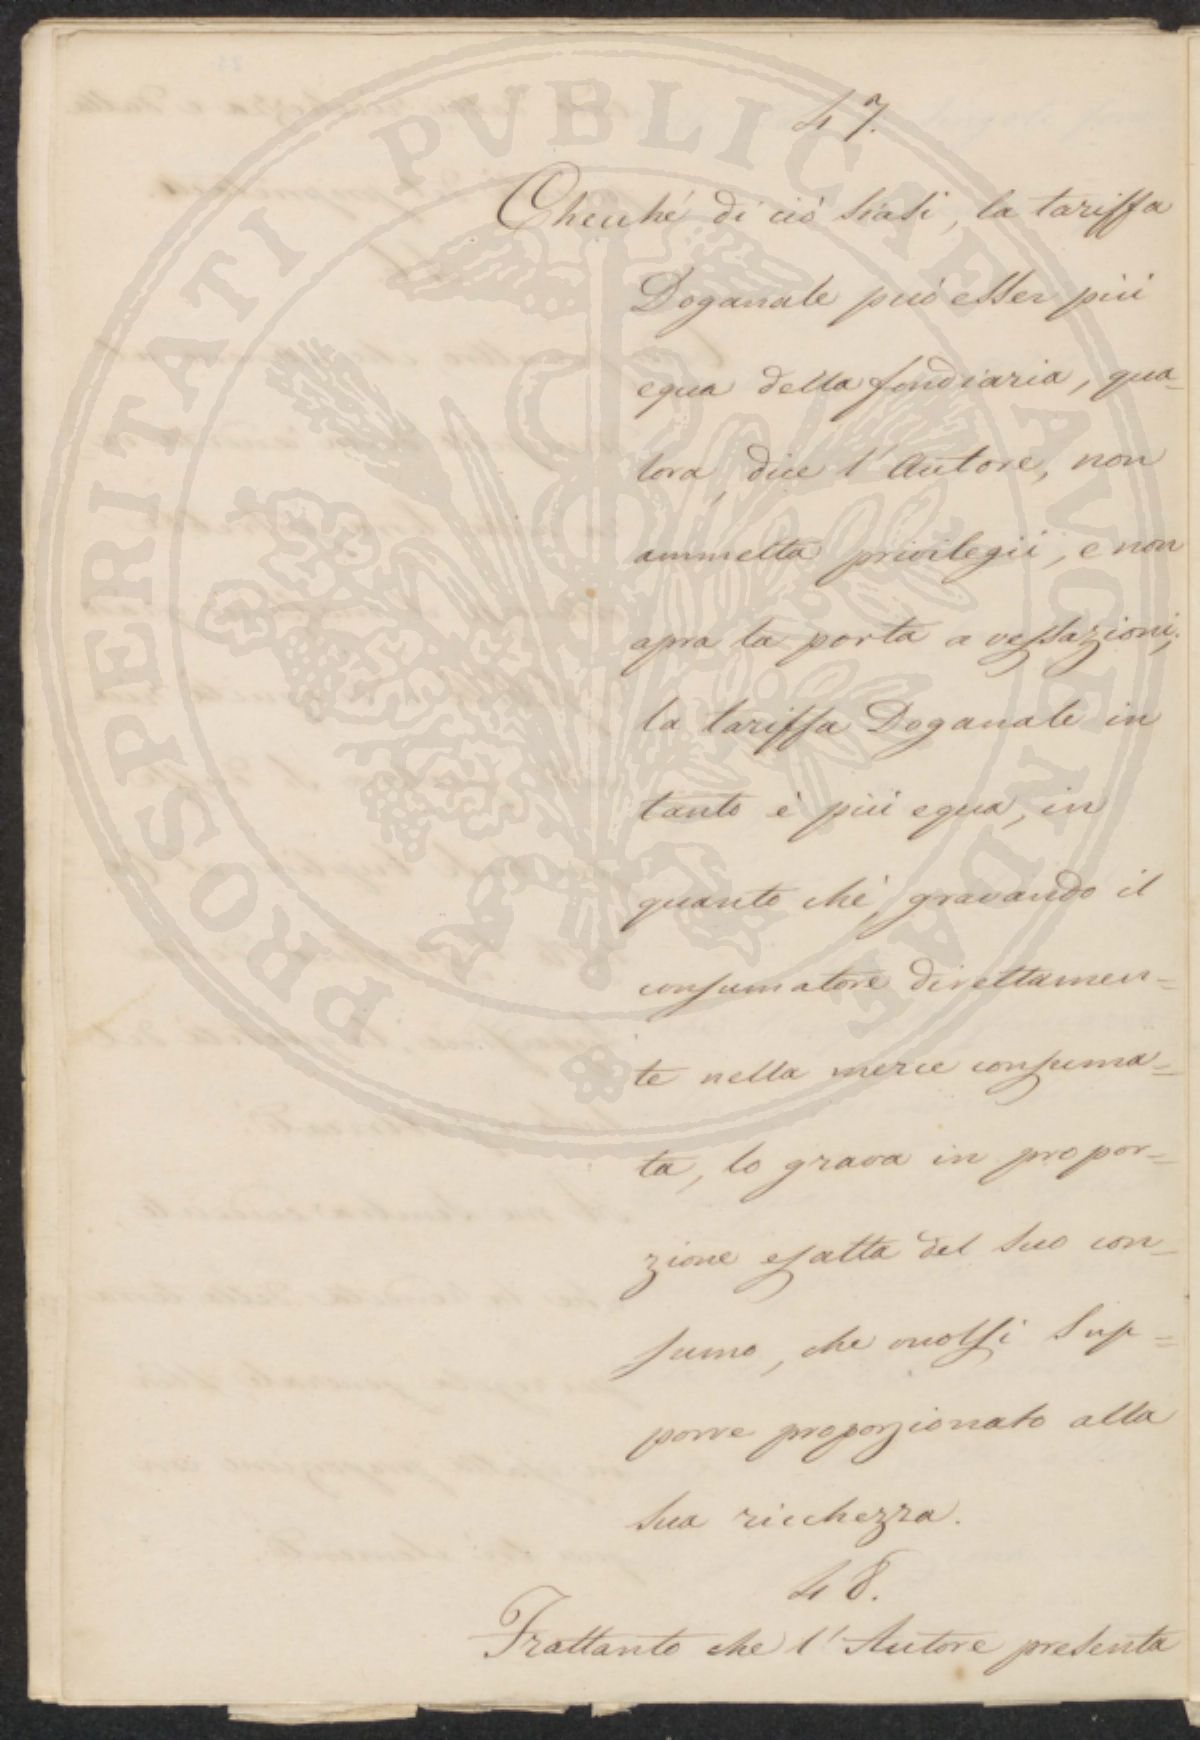 PROSPERITATI PVBLICAE AVGENDAE
47.
Checché di ciò siasi, la tariffa
Doganale può esser più
equa della fondiaria, qua-
lora, dice l'Autore, non
ammetta privilegii, e non
apra la porta a vessazioni;
la tariffa Doganale in
tanto è più equa, in
quanto chè, gravando il
consumatore direttamen=
te nella merce consuma=
ta, lo grava in propor=
zione esatta del suo con-
sumo, che vuolsi sup=
porre proporzionato alla
sua ricchezza.
48.
Frattanto che l'Autore presenta